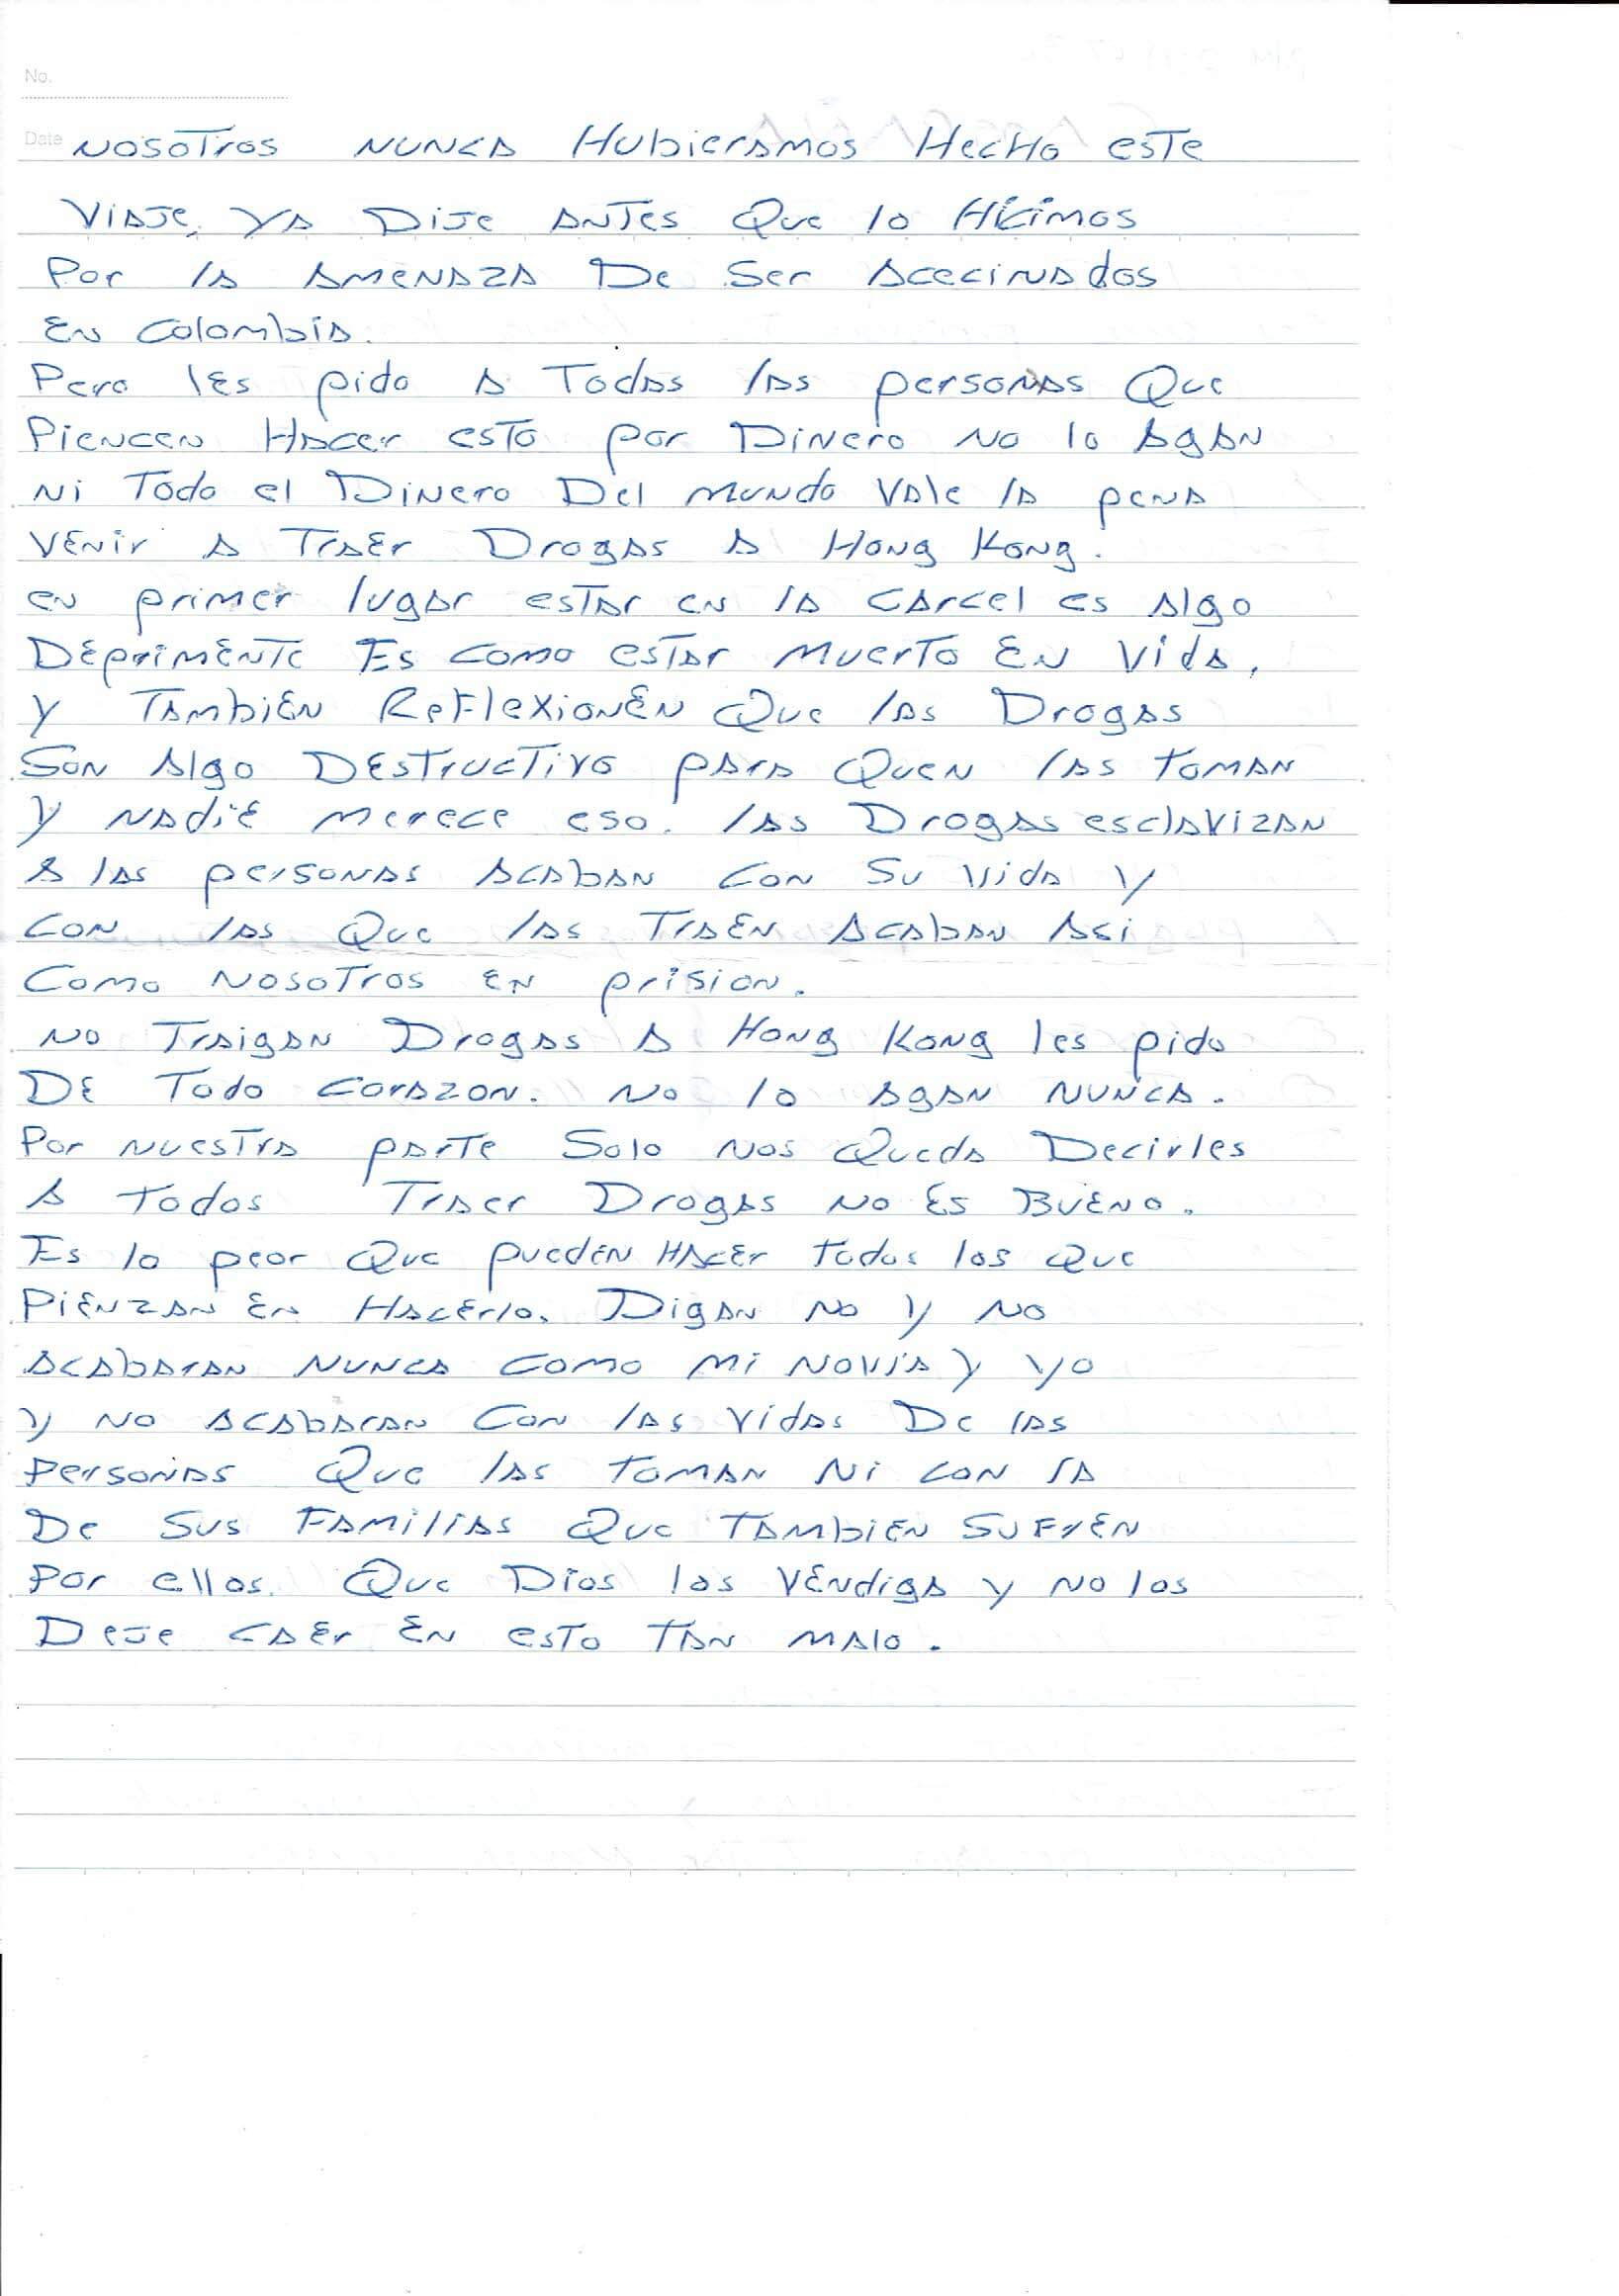 No.
Date
NOSOTros NUNCA HubierAmos HecHo esTe
ViAJe, YA DiJe ANTes Que lo Hicimos
Por lA AmeNAZA De Ser AceciNAdos
EN ColombiA.
Pero lEs pido A TodAs lAs persoNAs Que
PieNceN HAcer esTo por DiNero No lo AgAN
Ni Todo el DiNero Del muNdo VAle lA peNA
VENir A TrAEr DrogAs A HoNg KoNg.
eN primer lugAr esTAr eN lA cArcel es Algo
DEprimENTe Es como esTAr muerTo EN VidA,
y TAmbiÉN ReFlexioNEN Que lAs DrogAs
SoN Algo DEsTrucTivo pArA QueN lAs TomAN
y NAdiE merece eso. lAs DrogAs esclAVizAN
A lAs persoNAs AcAbAN coN Su vidA y
coN lAs Que lAs TrAEN AcAbAN Asi
Como NosoTros EN prisioN.
No TrAigAN DrogAs A HoNg KoNg les pido
DE Todo corAzoN. No lo AgAN NuNcA.
Por NuesTrA pArTe Solo Nos QuedA Decirles
A Todos TrAer DrogAs No Es BuENo.
Es lo peor Que puedEN HAcEr Todos los Que
PiENZAN EN HAcErlo. DigAN No y No
AcAbArAN NuNcA como mi NoviA y yo
y No AcAbArAN CoN lAs VidAs De lAs
persoNAs Que lAs TomAN Ni coN lA
De Sus FAmiliAs Que TAmbiEN SuFrEN
Por ellos. Que Dios los VENdigA y No los
DeJe cAEr EN esTo TAN mAlo.